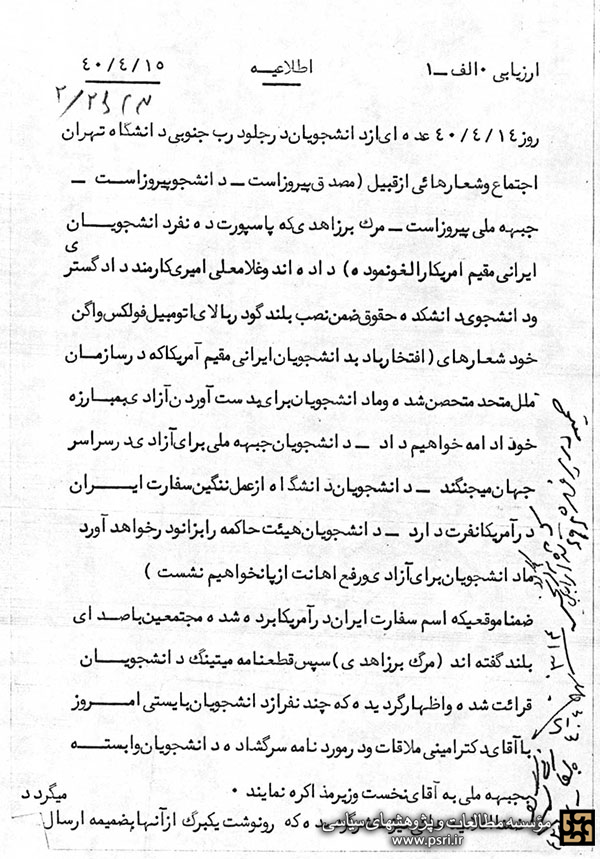 ارزیابی ۰ الف ــ ۱ اطلاعیــه ۴۰/۴/۱۵
روز ۴۰/۴/۱۴ عده ای از دانشجویان در جلو درب جنوبی دانشگاه تهران
اجتماع و شعارهائی از قبیل (مصدق پیروز است ــ دانشجو پیروز است ــ
جبهه ملی پیروز است ــ مرگ بر زاهدی که پاسپورت ده نفر دانشجویــان
ایرانی مقیم امریکا را لغو نموده) داده اند و غلامعلی امیری کارمند دادگستری
و دانشجوی دانشکده حقوق ضمن نصب بلندگو در بالای اتومبیل فولکس واگن
خود شعارهای (افتخار باد بدانشجویان ایرانی مقیم آمریکا که در سازمان
ملل متحد متحصن شده و ما دانشجویان برای بدست آوردن آزادی بمبارزه
خود ادامه خواهیم داد ــ دانشجویان جبهه ملی برای آزادی در سراسر
جهان میجنگند ــ دانشجویان دانشگاه از عمل ننگین سفارت ایــران
در آمریکا نفرت دارد ــ دانشجویان هیئت حاکمه را بزانو در خواهد آورد
ما دانشجویان برای آزادی و رفع اهانت از پا نخواهیم نشست)
ضمنا موقعیکه اسم سفارت ایران در آمریکا برده شده مجتمعین با صدای
بلند گفته اند (مرگ بر زاهدی) سپس قطعنامه میتینگ دانشجویــان
قرائت شده و اظهار گردیده که چند نفر از دانشجویان بایستی امــروز
با آقای دکتر امینی ملاقات و در مورد نامه سرگشاده دانشجویان وابستــه
بجبهه ملی به آقای نخست وزیر مذاکره نمایند ۰ میگردد
ده که رونوشت یکبرگ از آنها بضمیمه ارسال
مؤسسه مطالعات و پژوهشهای سیاسی
www.psri.ir